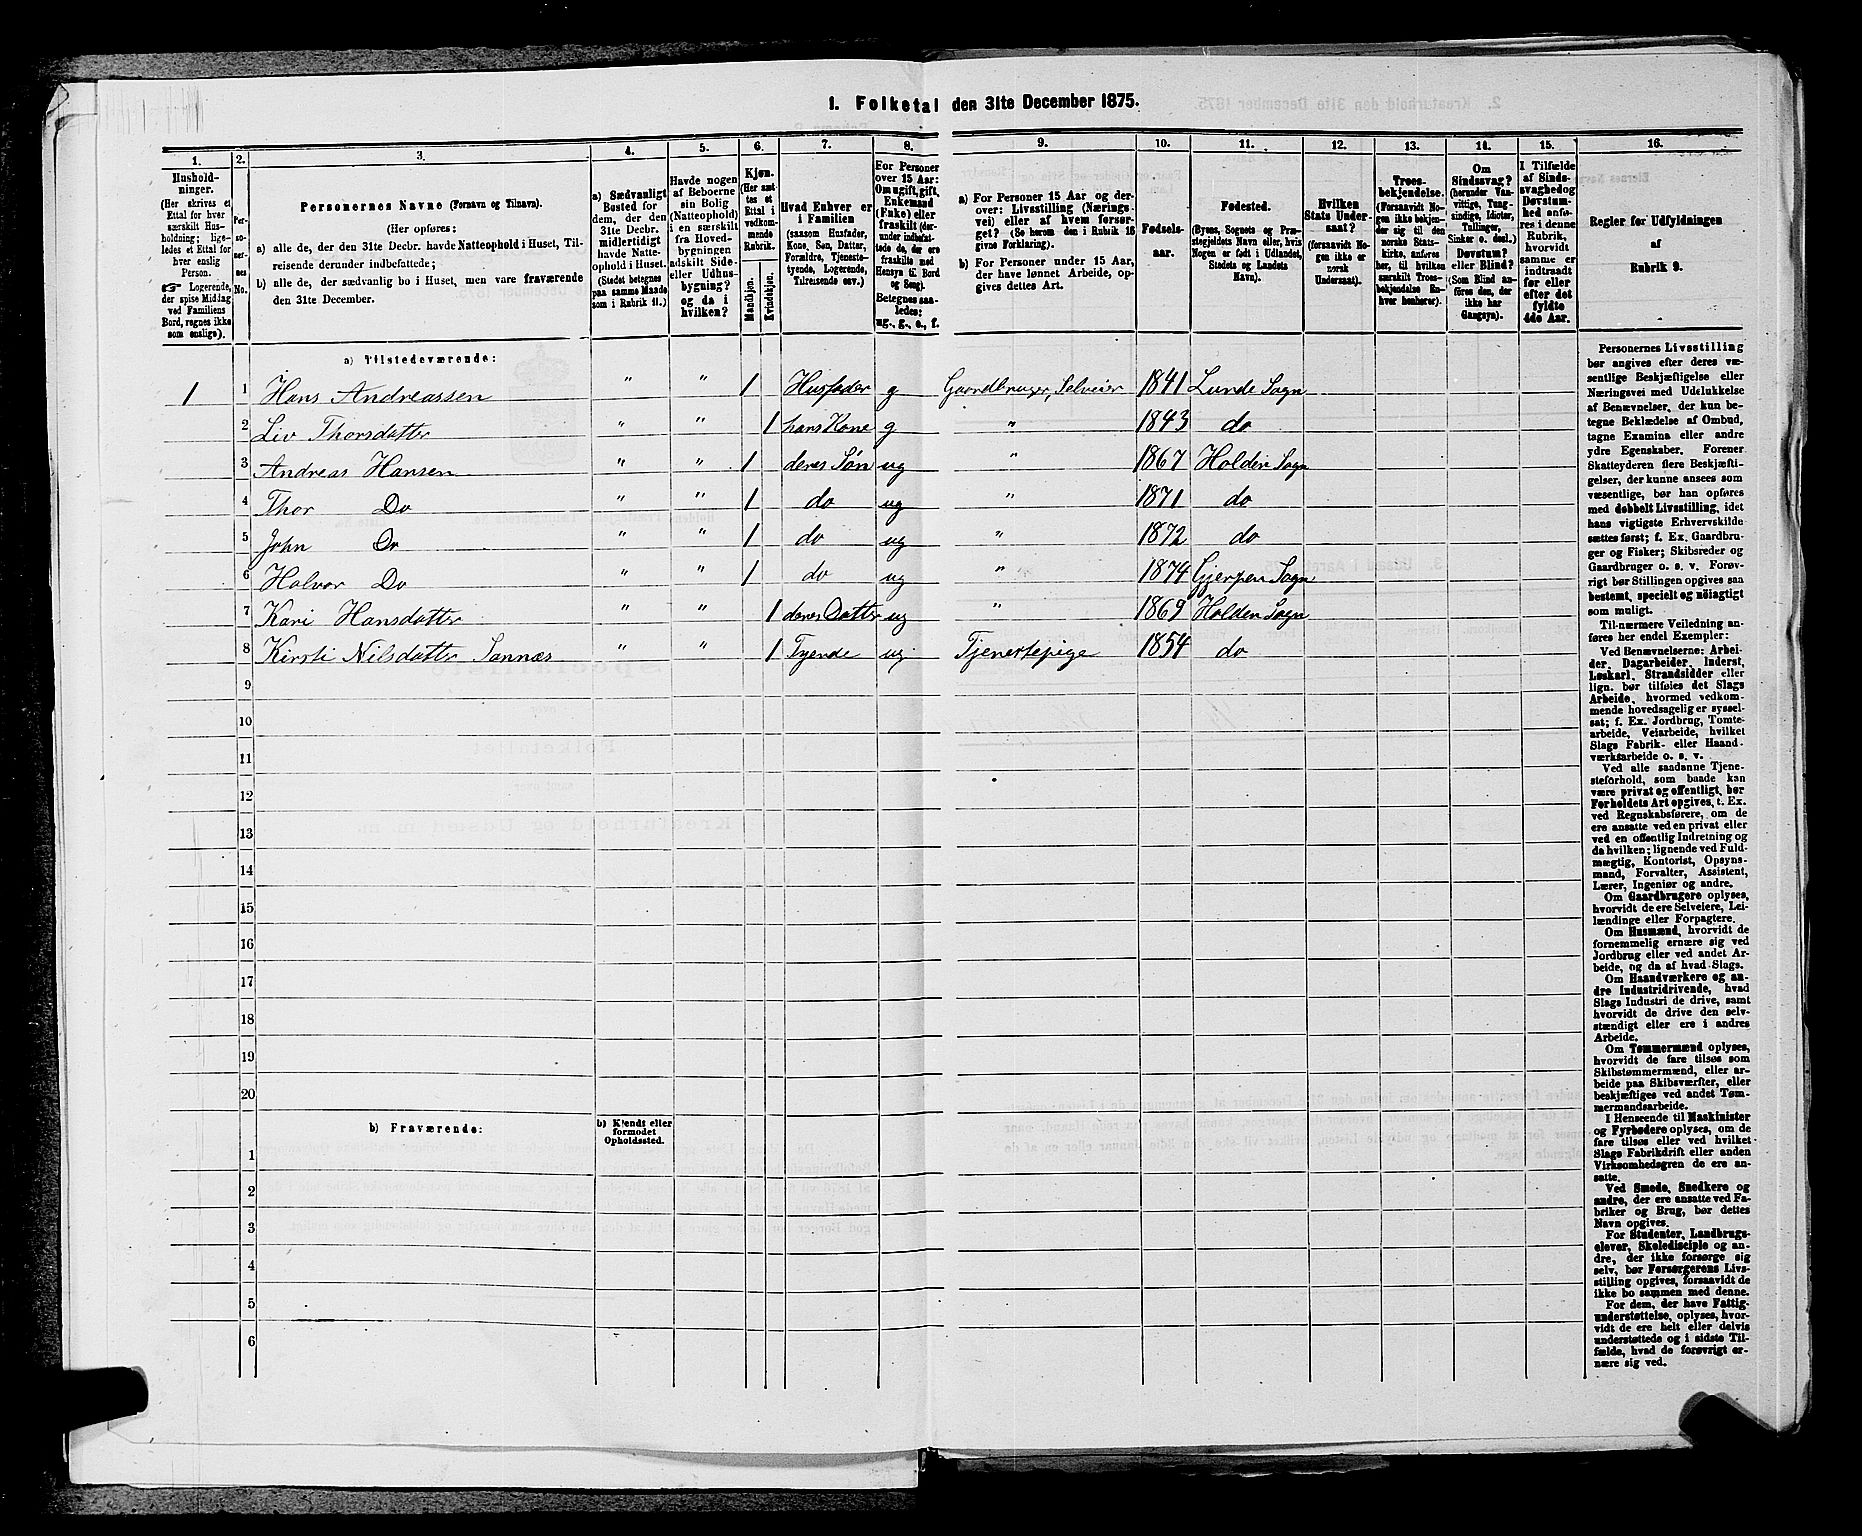 1. Folketal den 31te December 1875.
1. 2. 3. 4. 5. 6. 7. 8. 9. 10. 11. 12. 13. 14. 15. 16.
Hushold-
ninger.
(Her skrives et
Ettal for hver
særskilt Hus-
holdning; lige-
ledes et Ettal for
hver enslig
Person.
☞ Logerende,
der spise Middag
ved Familiens
Bord, regnes ikke
som enslige).
Per-
so-
ner-
nes
No.
Personernes Navne (Fornavn og Tilnavn).
(Her opføres:
a) alle de, der den 31te Decbr. havde Natteophold i Huset, Til-
reisende derunder indbefattede;
b) alle de, der sædvanlig bo i Huset, men vare fraværende
den 31te December.
a) Sædvanligt
Bosted for
dem, der den
31te Decbr.
midlertidigt
havde Natte-
ophold i Huset.
(Stedet betegnes
paa samme Maade
som i Rubrik 11.)
Havde nogen
af Beboerne
sin Bolig
(Natteophold)
i en særskilt
fra Hoved-
bygningen
adskilt Side-
eller Udhus-
bygning?
og da i
hvilken?
Kjøn.
(Her sæt-
tes et
Ettal i
vedkom-
mende
Rubrik.
Mandkjøn.
Kvindekjøn.
Hvad Enhver er
i Familien
(saasom Husfader,
Kone, Søn, Datter,
Forældre, Tjeneste-
tyende, Logerende,
Tilreisende osv.)
For Personer
over 15 Aar:
Om ugift, gift,
Enkemand
(Enke) eller
fraskilt (der-
under indbefat-
tede de, der ere
fraskilte med
Hensyn til Bord
og Seng).
Betegnes saa-
ledes:
ug., g., e., f.
a) For Personer 15 Aar og der-
over: Livsstilling (Nærings-
vei) eller af hvem forsør-
get? (Se herom den i Rubrik 16
givne Forklaring).
b) For Personer under 15 Aar,
der have lønnet Arbeide, op-
gives dettes Art.
Fødsels-
aar.
Fødested.
(Byens, Sognets og Præ-
stegjeldets Navn eller, hvis
Nogen er født i Udlandet,
Stedets og Landets
Navn).
Hvilken
Stats Under-
saat?
(forsaavidt No-
gen ikke er
norsk
Undersaat).
Troes-
bekjendelse.
(Forsaavidt No-
gen ikke bekjen-
der sig til den
norske Stats-
kirke, anføres
her, til hvilken
særskilt Troes-
bekjendelse En-
hver henhører).
Om
Sindssvag?
(herunder Van-
vittige, Tung-
sindige, Idioter,
Tullinger,
Sinker o. desl.)
Døvstum?
eller Blind?
(Som Blind an-
føres den, der
ikke har
Gangsyn).
I Tilfælde
af Sinds-
svaghed og
Døvstum-
hed anfø-
res i denne
Rubrik,
hvorvidt
samme er
indtraadt
før eller
efter det
fyldte
4de Aar.
Regler for Udfyldningen
af
Rubrik 9.
a) Tilstedeværende:
1 1 Hans Andreassen " " 1 Husfader g Gaardbruger, Selveier 1841 Lunde Sogn
2 Liv Thorsdatter " " 1 hans Kone g " 1843 do
3 Andreas Hansen " " 1 deres Søn ug " 1867 Holden Sogn
4 Thor Do " " 1 do ug " 1871 do
5 John Do " " 1 do ug " 1872 do
6 Halvor Do " " 1 do ug " 1874 Gjerpen Sogn
7 Kari Hansdatter " " 1 deres Datter ug " 1869 Holden Sogn
8 Kirsti Nilsdatter Sannæs " " 1 Tyende ug. Tjenestepige 1854 do
9
10
11
12
13
14
15
16
17
18
19
20
b) Fraværende:
b) Kjendt eller
formodet
Opholdssted.
1
2
3
4
5
6
Personernes Livsstilling
bør angives efter deres væ-
sentlige Beskjæftigelse eller
Næringsvei med Udelukkelse
af Benævnelser, der kun be-
tegne Beklædelse af Ombud,
tagne Examina eller andre
ydre Egenskaber. Forener
Skatteyderen flere Beskjæfti-
gelser, der kunne ansees som
væsentlige, bør han opføres
med dobbelt Livsstilling, idet
hans vigtigste Erhvervskilde
sættes først; f. Ex. Gaardbru-
ger og Fisker; Skibsreder og
Gaardbruger o. s. v. Forøv-
rigt bør Stillingen opgives saa
bestemt, specielt og nøiagtigt
som muligt.
Til nærmere Veiledning an-
føres her endel Exempler:
Ved Benævnelserne: Arbei-
der, Dagarbeider, Inderst,
Løskarl, Strandsidder eller
lign. bør tilføies det Slags
Arbeide, hvormed vedkom-
mende hovedsagelig er syssel-
sat; f. Ex. Jordbrug, Tomte-
arbeide, Veiarbeide, hvilket
Slags Fabrik- eller Haand-
værksarbeide o. s. v.
Ved alle saadanne Tjene-
steforhold, som baade kan
være privat og offentligt, bør
Forholdets Art opgives, t. Ex.
ved Regnskabsførere, om de
ere ansatte ved en privat eller
ved en offentlig Indretning og
da hvilken; lignende ved Fuld-
mægtig, Kontorist, Opsyns-
mand, Forvalter, Assistent,
Lærer, Ingeniør og andre.
Om Gaardbrugere oplyses,
hvorvidt de ere Selveiere, Lei-
lændinge eller Forpagtere.
Om Husmænd, hvorvidt de
fornemmelig ernære sig ved
Jordbrug eller ved andet Ar-
beide, og da af hvad Slags.
Om Haandværkere og an-
dre Industridrivende, hvad
Slags Industri de drive, samt
hvorvidt de drive den selv-
stændigt eller ere i andres
Arbeide.
Om Tømmermænd oplyses,
hvorvidt de fare tilsøs som
Skibstømmermænd, eller ar-
beide paa Skibsværfter, eller
beskjæftiges ved andet Tøm-
mermandsarbeide.
I Henseende til Maskinister
og Fyrbødere oplyses, om de
fare tilsøs eller ved hvilket
Slags Fabrikdrift eller anden
Virksomhedsgren de ere an-
satte.
Ved Smede, Snedkere og
andre, der ere ansatte ved Fa-
briker og Brug, bør dettes
Navn opgives.
For Studenter, Landbrugs-
elever, Skoledisciple og an-
dre, der ikke forsørge sig
selv, bør Forsørgerens Livs-
stilling opgives, forsaavidt de
ikke bo sammen med denne.
For dem, der have Fattig-
understøttelse, oplyses, hvor-
vidt de ere helt eller delvis
understøttede og i sidste Til-
fælde, hvad de forøvrigt er-
nære sig ved.